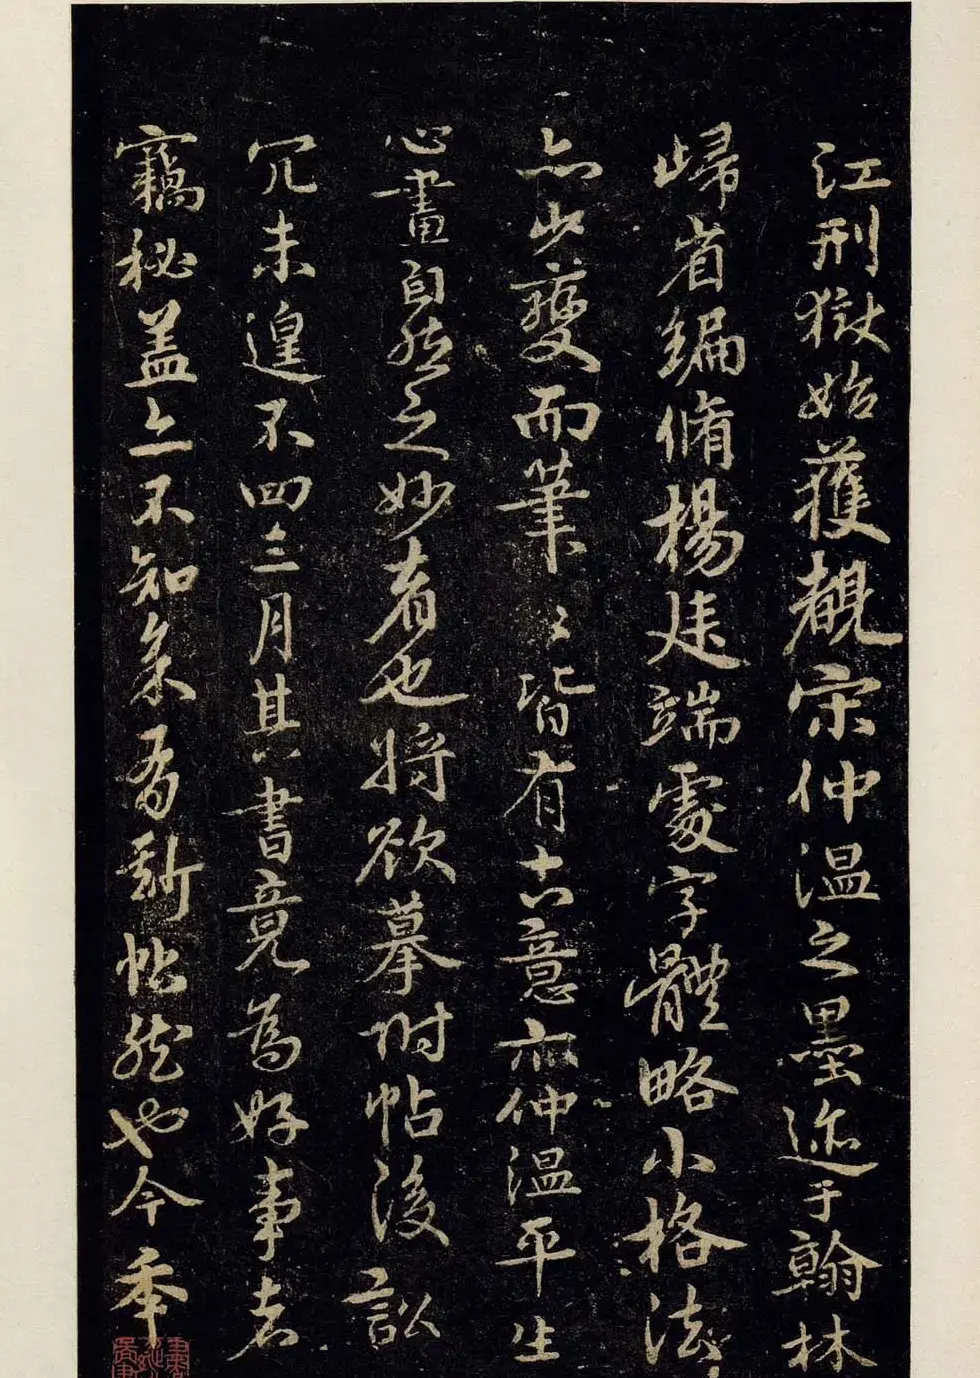 江刑獄始獲覩宋仲温之墨迹于翰林
歸省編脩楊廷端處字體略小格法
亦少變而筆〻皆有古意亦仲温平生
心畫自然之妙者也將欲摹附帖後訟
冗未遑不四三月其書竟爲好事者
竊秘盖亦不知余有斯帖然也今年